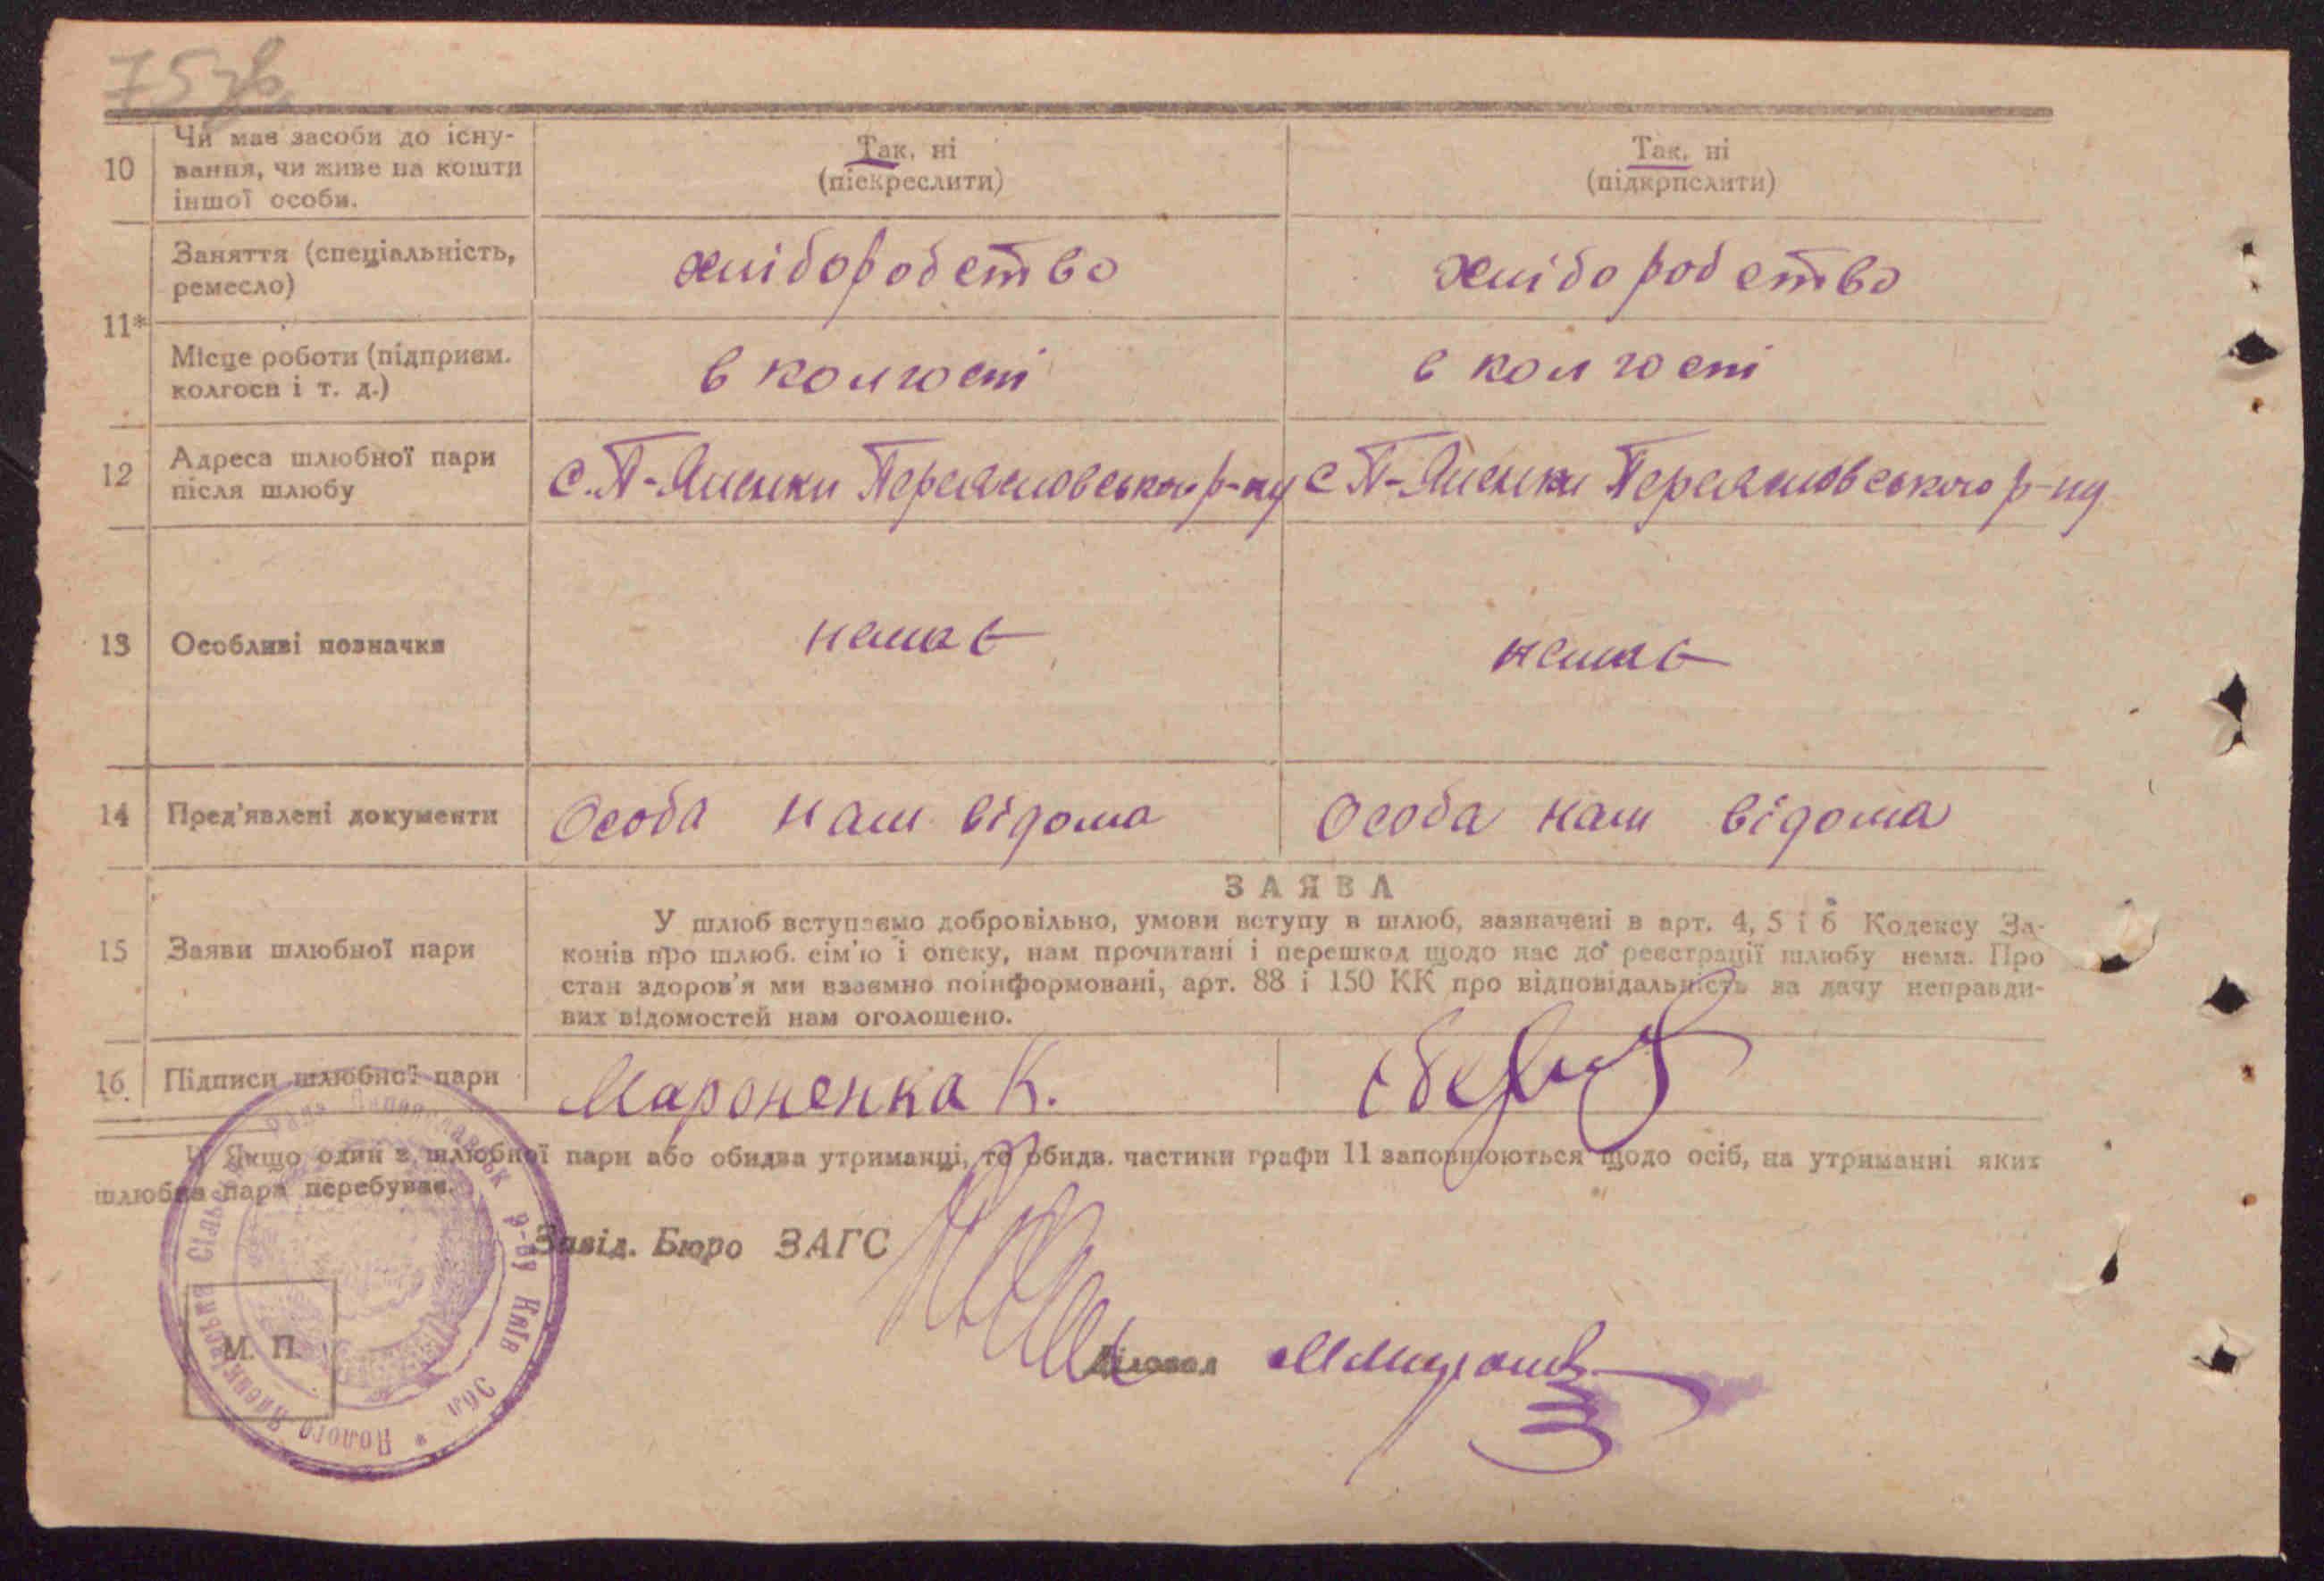 75зв
10
Чи має засоби до існу-
вання, чи живе на кошти
іншої особи.
Так, ні
(піскреслити)
Так, ні
(підкрпслити)
11*
Заняття (спеціальність,
ремесло)
хліборобство
хліборобство
Місце роботи (підприєм.
колгосп і т. д.)
в колгоспі
в колгоспі
12
Адреса шлюбної пари
після шлюбу
с. П-Яненки Переяславського р-ну
с П-Яненки Переяславського р-ну
13
Особливі позначки
немає
немає
14
Пред'явлені документи
Особа нам відома
Особа нам відома
15
Заяви шлюбної пари
ЗАЯВА
У шлюб вступаємо добровільно, умови вступу в шлюб, зазначені в арт. 4, 5 і 6 Кодексу За-
конів про шлюб. сім'ю і опеку, нам прочитані і перешкод щодо нас до реєстрації шлюбу нема. Про
стан здоров'я ми взаємно поінформовані, арт. 88 і 150 КК про відповідальність за дачу неправди-
вих відомостей нам оголошено.
16.
Підписи шлюбної пари
Мароненка К.
Якщо один з шлюбної пари або обидва утриманці, то обидв. частини графи 11 заповнюються щодо осіб, на утриманні яких
шлюбна пара перебуває.
Завід. Бюро ЗАГС
М. П.
Діловод
Сільська Рада Переяславськ р-ну Київ Обл * Полого Яненківська